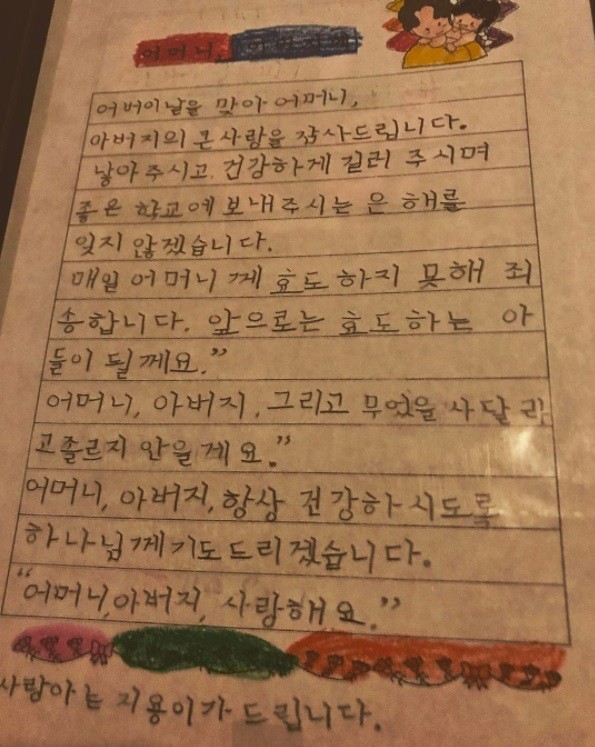 어머니,
어버이날을 맞아 어머니,
아버지의 큰사랑을 감사드립니다.
낳아주시고, 건강하게 길러 주시며
좋은 학교에 보내주시는 은 해를
잊지 않겠습니다.
매일 어머니 께 효도 하지 못해 죄
송합니다. 앞으로는 효도하는 아
들이 될께요.”
어머니, 아버지, 그리고 무엇을 사달라
고졸르지 안을게요.”
어머니, 아버지, 항상 건강하시도록
하나님께기도드리겠습니다.
“어머니,아버지, 사랑해요.”
지용이가 드립니다.